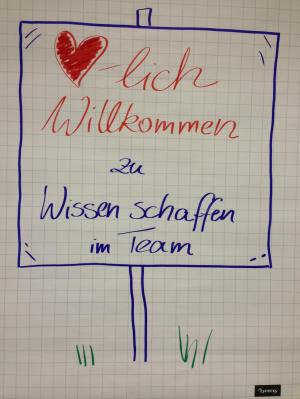 -lich
Willkommen
zu
Wissen schaffen
im Team